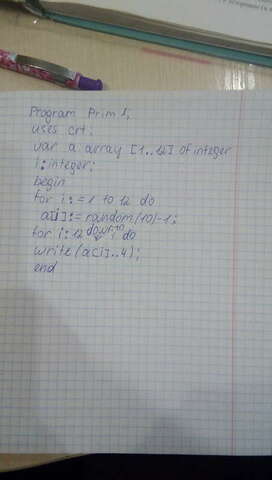 Program Prim 1;
uses crt;
var a array [1..12] of integer
i: integer;
begin
for i: = 1 to 12 do
a[i]:= random(10)-1;
for i: 12 downto 1 do
write (a[i]..4);
end